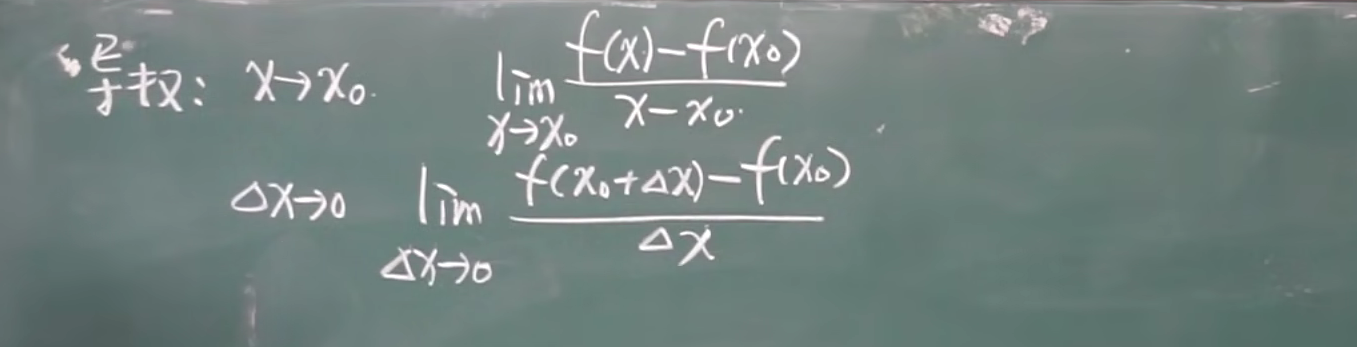 导权: x→x₀. lim x→x₀ f(x)-f(x₀) / x-x₀.
Δx→0 lim Δx→0 f(x₀+Δx)-f(x₀) / Δx